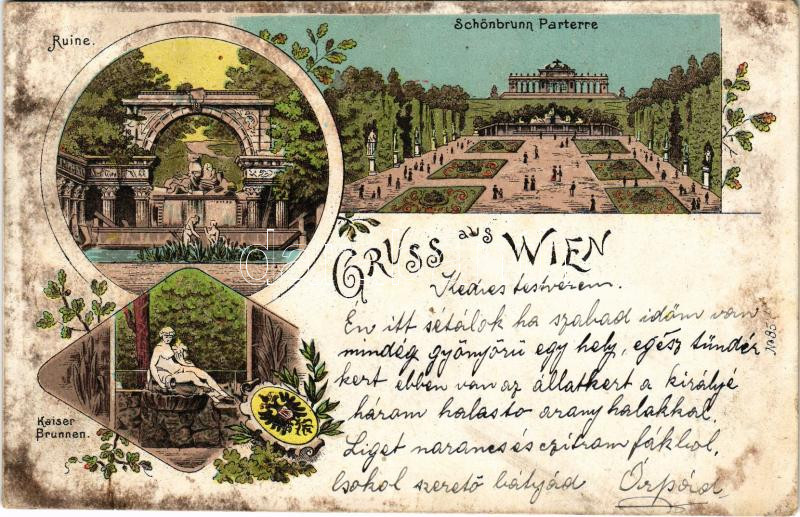 Ruine.
Schönbrunn Parterre
GRUSS aus WIEN
Kedves testvérem.
En itt sétálok ha szabad időm van
mindég gyönyörü egy hely, egész tündér
kert ebben van az állatkert a királyé
három halastó arany halakkal.
Liget narancs és czitrom fákbol.
Csokol szerető bátyád Árpád
No 85
Kaiser
Brunnen.